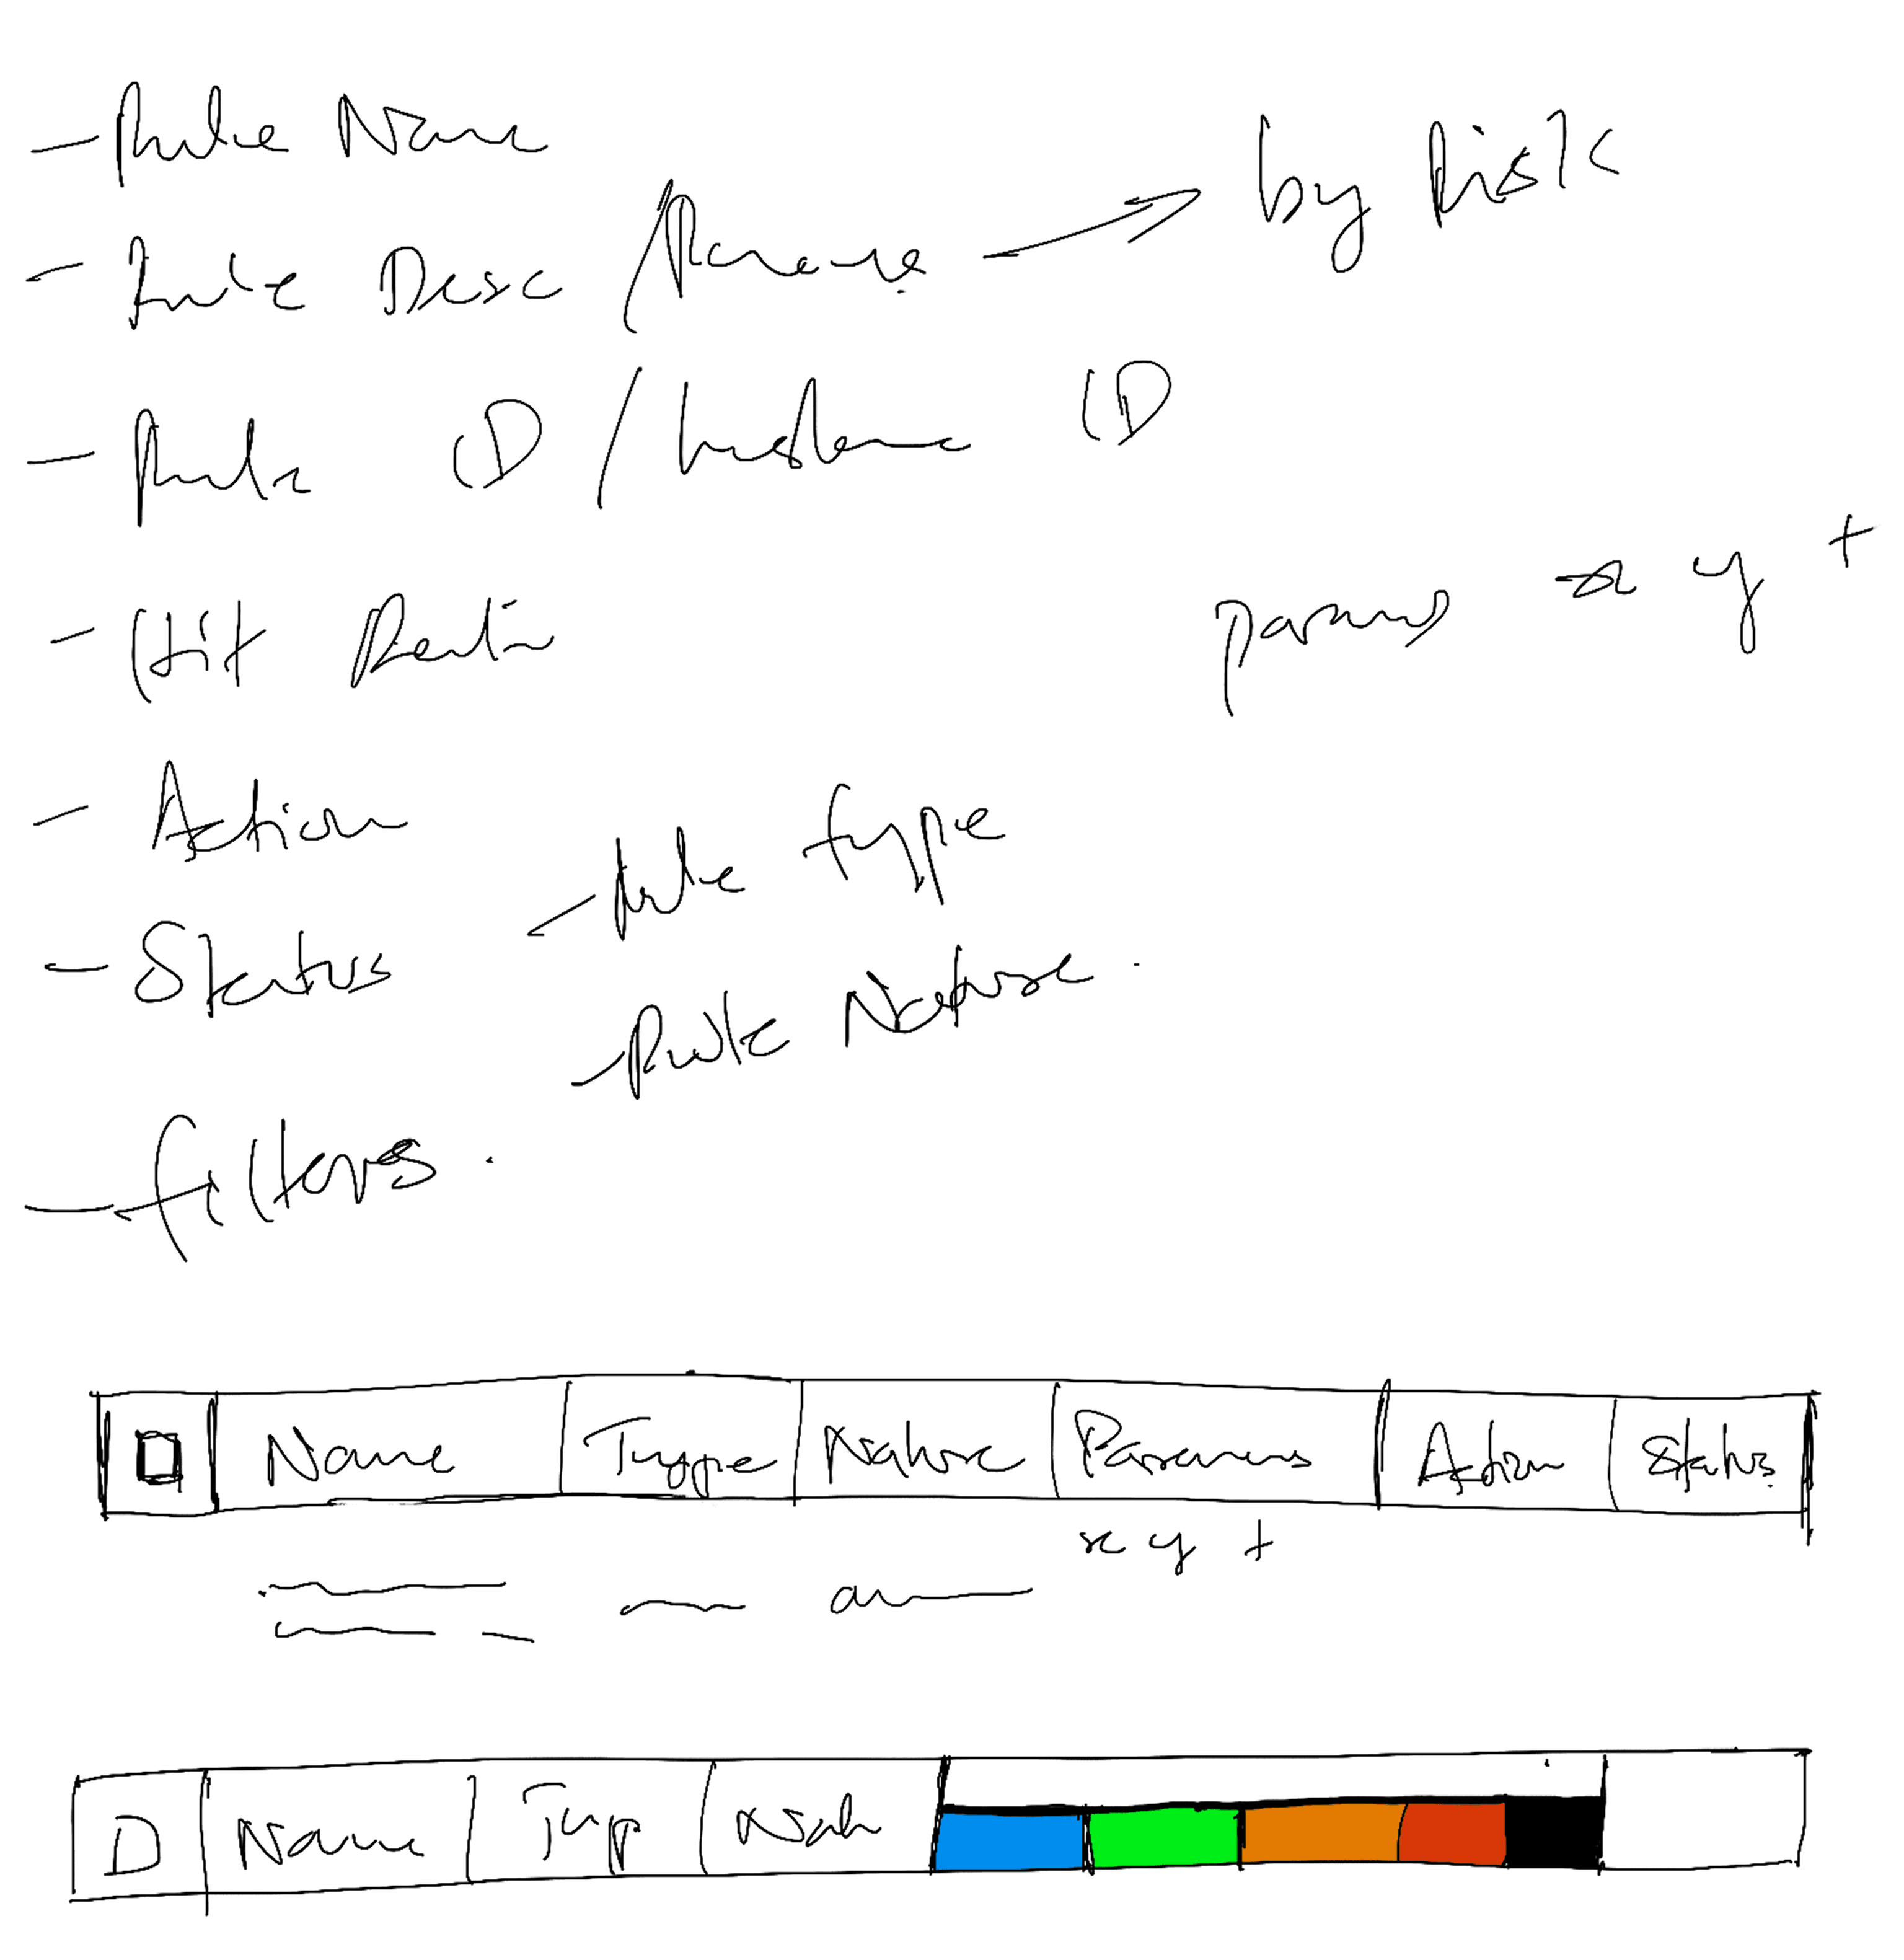 - Rule Name
- Rule Desc / → by Risk
- Rule ID / Instance ID
- Hit
params x y +
- Action
- Status
- rule type
- Rule Nature
- filters
Name Type Nature Params Action Status
x y +
Name Typ Natu